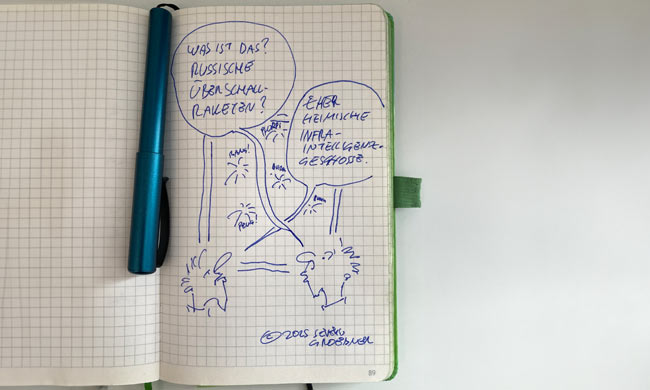 WAS IST DAS?
RUSSISCHE
ÜBERSCHALL-
RAKETEN?
EHER
HEIMISCHE
INFRA-
INTELLIGENZ-
GESCHOSSE.
BUMM
PENG!
© 2025 SEVERIN
GROEBNER
89